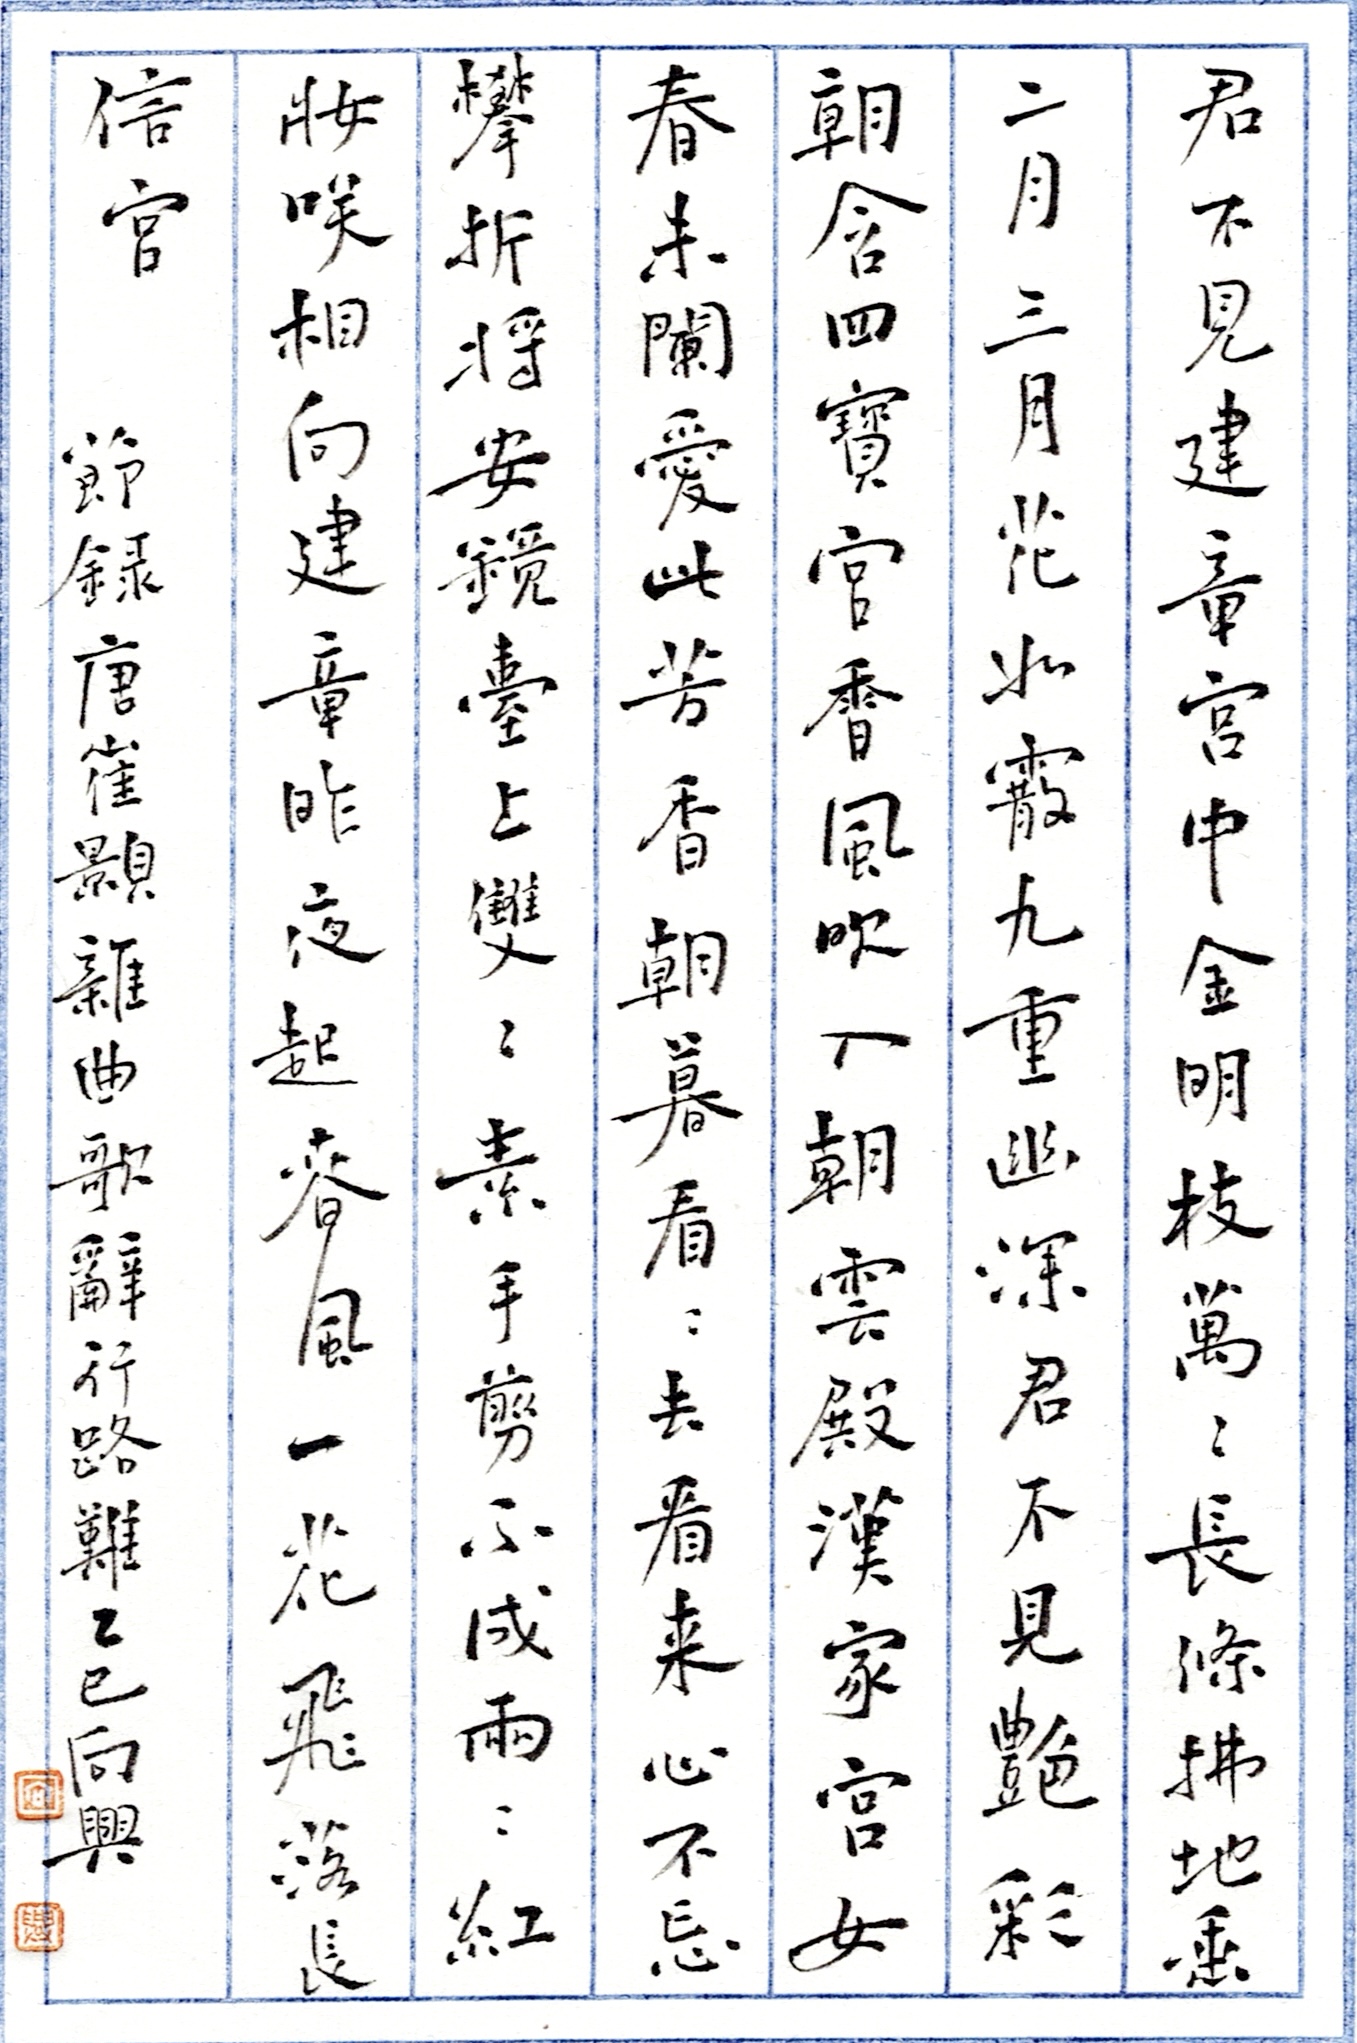 君不見建章宮中金明枝萬〻長條拂地垂
二月三月花如霰九重幽深君不見艷彩
朝含四寶宮香風吹入朝雲殿漢家宮女
春未闌愛此芳香朝暮看〻去看来心不忘
攀折將安鏡臺上雙〻素手剪不成兩〻紅
妝咲相向建章昨夜起春風一花飛落長
信宮
節錄唐崔顥雜曲歌辭行路難乙巳向興
向